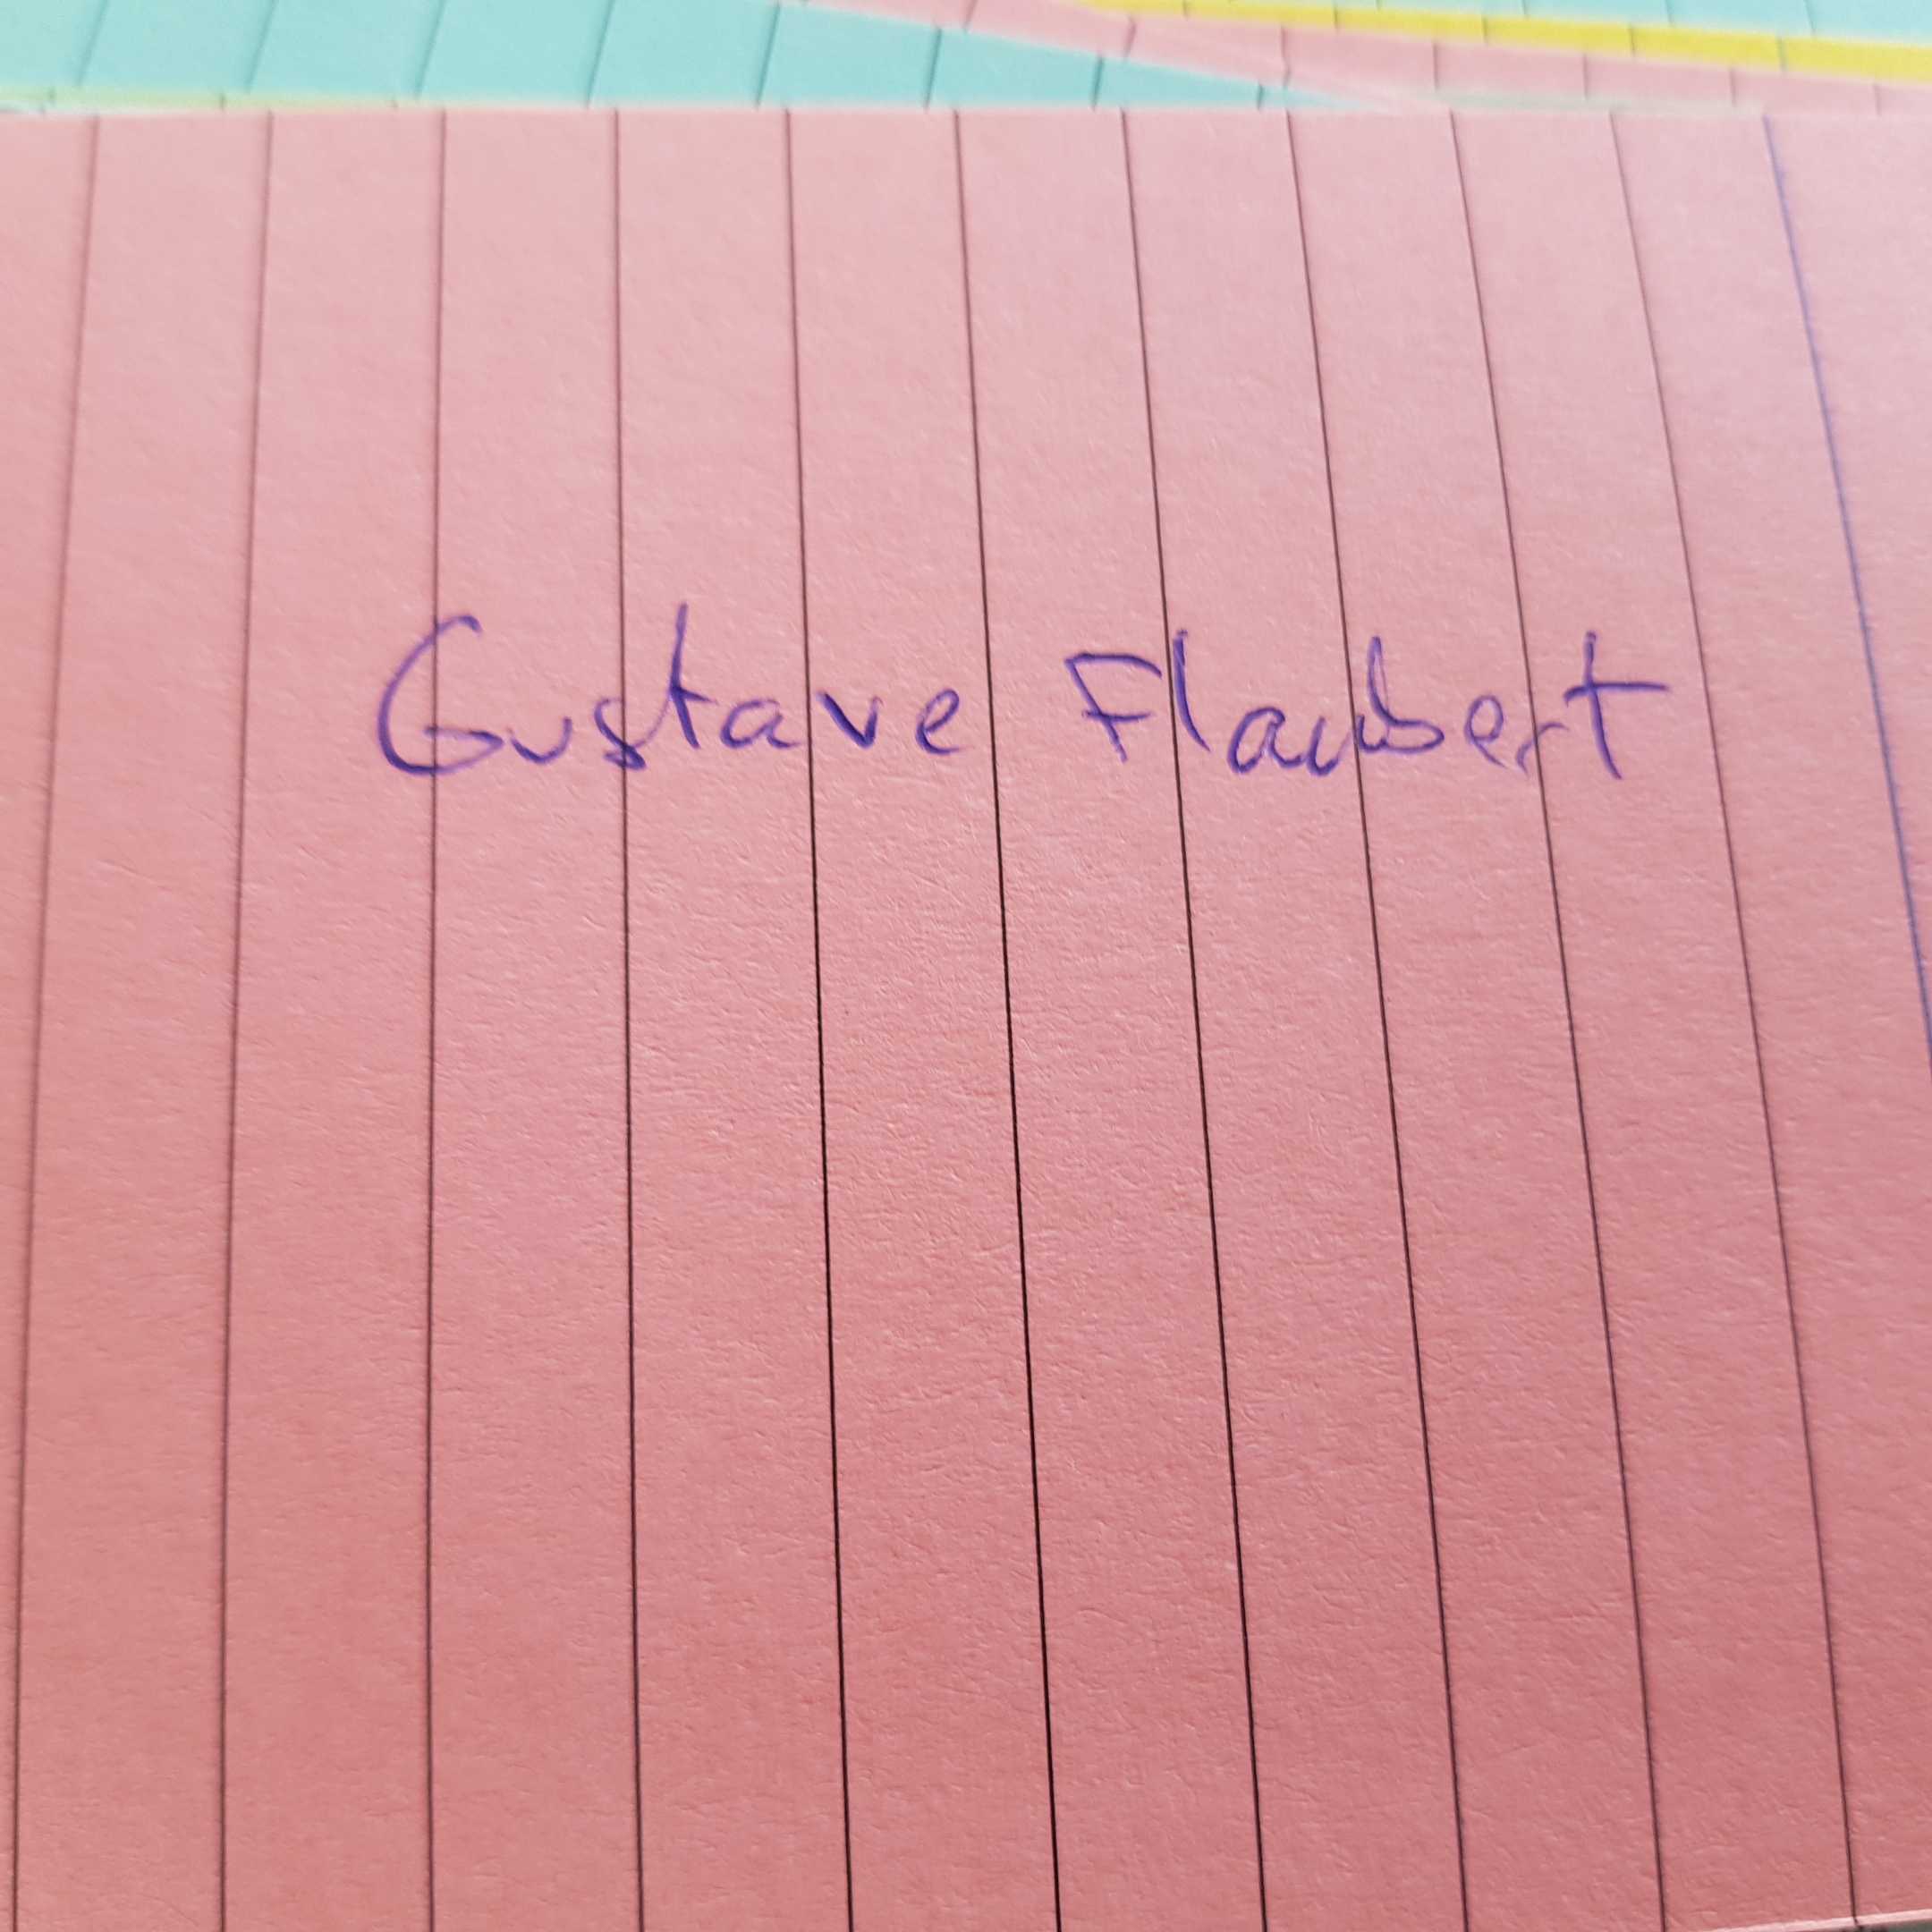 Gustave Flaubert